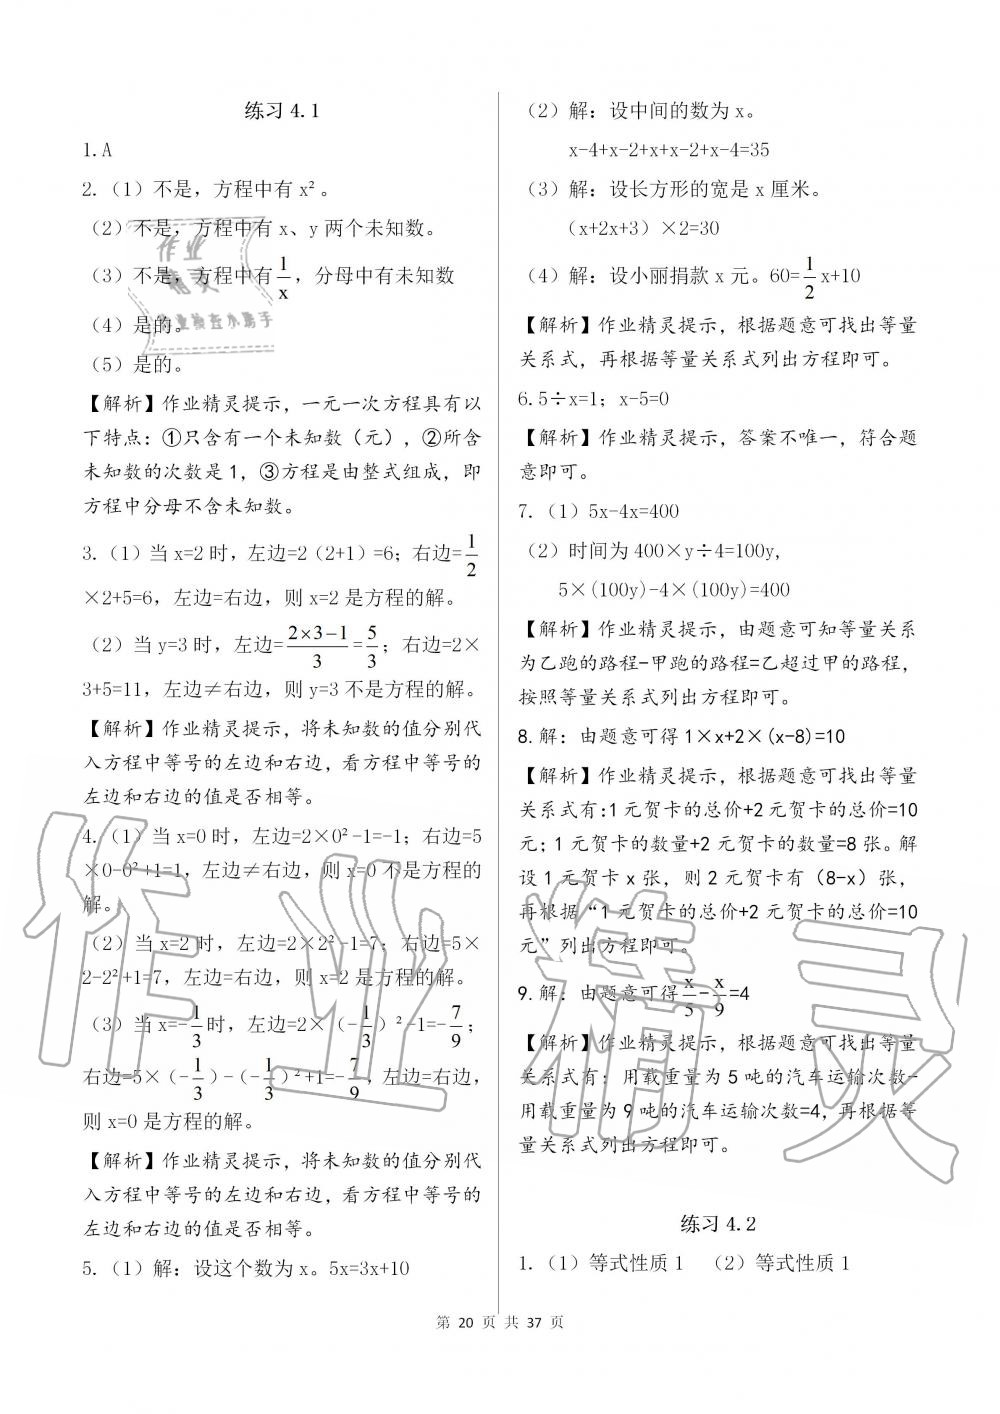 练习4.1
1.A
2.（1）不是，方程中有 x²。
（2）不是，方程中有 x、y 两个未知数。
（3）不是，方程中有 1/x，分母中有未知数
（4）是的。
（5）是的。
【解析】作业精灵提示，一元一次方程具有以
下特点：①只含有一个未知数（元），②所含
未知数的次数是 1，③方程是由整式组成，即
方程中分母不含未知数。
3.（1）当 x=2 时，左边=2（2+1）=6；右边=1/2
×2+5=6，左边=右边，则 x=2 是方程的解。
（2）当 y=3 时，左边=(2×3−1)/3=5/3；右边=2×
3+5=11，左边≠右边，则 y=3 不是方程的解。
【解析】作业精灵提示，将未知数的值分别代
入方程中等号的左边和右边，看方程中等号的
左边和右边的值是否相等。
4.（1）当 x=0 时，左边=2×0²-1=-1；右边=5
×0-0²+1=1，左边≠右边，则 x=0 不是方程的
解。
（2）当 x=2 时，左边=2×2²-1=7；右边=5×
2-2²+1=7，左边=右边，则 x=2 是方程的解。
（3）当 x=-1/3时，左边=2×（-1/3）²-1=-7/9；
右边=5×（-1/3）-（-1/3）²+1=-7/9，左边=右边，
则 x=0 是方程的解。
【解析】作业精灵提示，将未知数的值分别代
入方程中等号的左边和右边，看方程中等号的
左边和右边的值是否相等。
5.（1）解：设这个数为 x。5x=3x+10
（2）解：设中间的数为 x。
x-4+x-2+x+x-2+x-4=35
（3）解：设长方形的宽是 x 厘米。
（x+2x+3）×2=30
（4）解：设小丽捐款 x 元。60=1/2x+10
【解析】作业精灵提示，根据题意可找出等量
关系式，再根据等量关系式列出方程即可。
6.5÷x=1；x-5=0
【解析】作业精灵提示，答案不唯一，符合题
意即可。
7.（1）5x-4x=400
（2）时间为 400×y÷4=100y,
5×(100y)-4×(100y)=400
【解析】作业精灵提示，由题意可知等量关系
为乙跑的路程-甲跑的路程=乙超过甲的路程，
按照等量关系式列出方程即可。
8.解：由题意可得 1×x+2×(x-8)=10
【解析】作业精灵提示，根据题意可找出等量
关系式有：1 元贺卡的总价+2 元贺卡的总价=10
元；1 元贺卡的数量+2 元贺卡的数量=8 张。解
设 1 元贺卡 x 张，则 2 元贺卡有（8-x）张，
再根据“1 元贺卡的总价+2 元贺卡的总价=10
元”列出方程即可。
9.解：由题意可得x/5-x/9=4
【解析】作业精灵提示，根据题意可找出等量
关系式有：用载重量为 5 吨的汽车运输次数-
用载重量为 9 吨的汽车运输次数=4，再根据等
量关系式列出方程即可。
练习4.2
1.（1）等式性质 1 （2）等式性质 1
第 20 页 共 37 页
作业
精灵
作业检查小助手
作业精灵